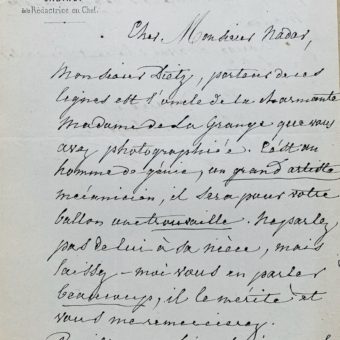 de la Rédactrice en Chef.
Cher Monsieur Nadar,
Monsieur Dietz, porteur de ces
lignes est l'oncle de la charmante
Madame de La Grange que vous
avez photographiée. C'est un
homme de génie, un grand artiste
mécanicien, il sera pour votre
ballon une trouvaille. Ne parlez
pas de lui à sa nièce, mais
laissez-moi vous en parler
beaucoup, il le mérite et
vous me remercierez.